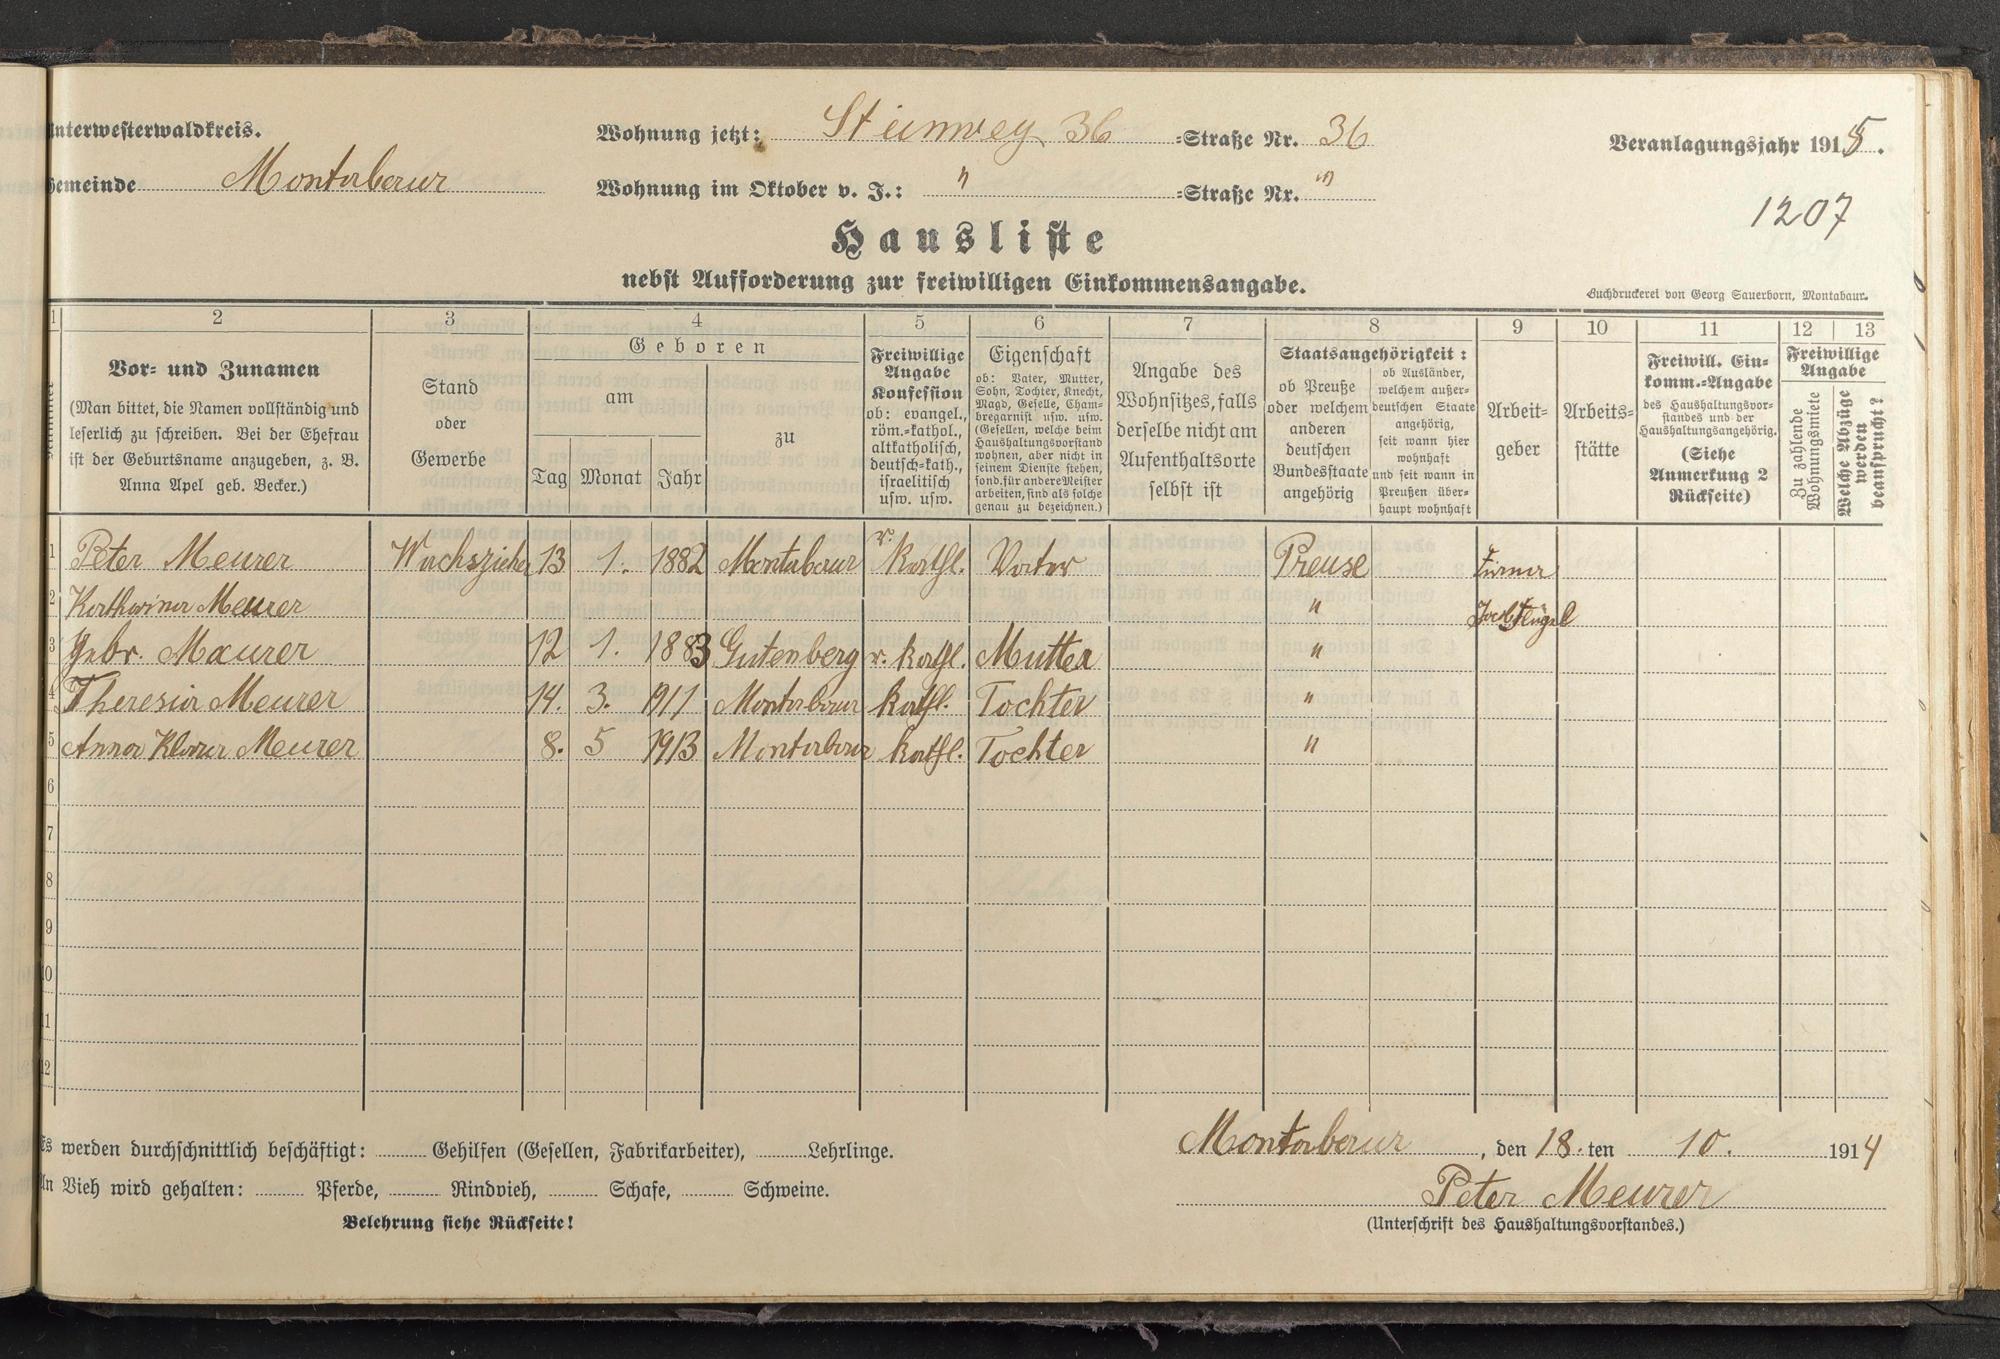 Unterwesterwaldkreis.
Wohnung jetzt: Steinweg 36 =Straße Nr. 36
Veranlagungsjahr 1915.
Gemeinde Montabaur
Wohnung im Oktober v. J.: " =Straße Nr. "
1207
Hausliste
nebst Aufforderung zur freiwilligen Einkommensangabe.
Buchdruckerei von Georg Sauerborn, Montabaur.
1 2 3 4 5 6 7 8 9 10 11 12 13
Nummer
Vor- und Zunamen
(Man bittet, die Namen vollständig und
leserlich zu schreiben. Bei der Ehefrau
ist der Geburtsname anzugeben, z. B.
Anna Apel geb. Becker.)
Stand
oder
Gewerbe
Geboren
am
Tag Monat Jahr
zu
Freiwillige
Angabe
Konfession
ob: evangel.,
röm.=kathol.,
altkatholisch,
deutsch=kath.,
israelitisch
usw. usw.
Eigenschaft
ob: Vater, Mutter,
Sohn, Tochter, Knecht,
Magd, Geselle, Cham-
bregarnist usw. usw.
(Gesellen, welche beim
Haushaltungsvorstand
wohnen, aber nicht in
seinem Dienste stehen,
sond. für andere Meister
arbeiten, sind als solche
genau zu bezeichnen.)
Angabe des
Wohnsitzes, falls
derselbe nicht am
Aufenthaltsorte
selbst ist
Staatsangehörigkeit:
ob Preuße
oder welchem
anderen
deutschen
Bundesstaate
angehörig
ob Ausländer,
welchem außer-
deutschen Staate
angehörig,
seit wann hier
wohnhaft
und seit wann in
Preußen über-
haupt wohnhaft
Arbeit-
geber
Arbeits-
stätte
Freiwill. Ein-
komm.=Angabe
des Haushaltungsvor-
standes und der
Haushaltungsangehörig.
(Siehe
Anmerkung 2
Rückseite)
Freiwillige
Angabe
Zu zahlende
Wohnungsmiete
Welche Abzüge
werden
beansprucht?
1 Peter Meurer Wachszieher 13 1. 1882 Montabaur r. kathl. Vater Preuse Firma
2 Katharina Meurer " Flügel
3 Gebr. Maurer 12 1. 1883 Gutenberg r. kathl. Mutter "
4 Theresia Meurer 14. 3. 1911 Montabaur kathl. Tochter "
5 Anna Klara Meurer 8. 5 1913 Montabaur kathl. Tochter "
6
7
8
9
10
11
12
Es werden durchschnittlich beschäftigt: Gehilfen (Gesellen, Fabrikarbeiter), Lehrlinge.
An Vieh wird gehalten: Pferde, Rindvieh, Schafe, Schweine.
Belehrung siehe Rückseite!
Montabaur, den 18. ten 10. 1914
Peter Meurer
(Unterschrift des Haushaltungsvorstandes.)